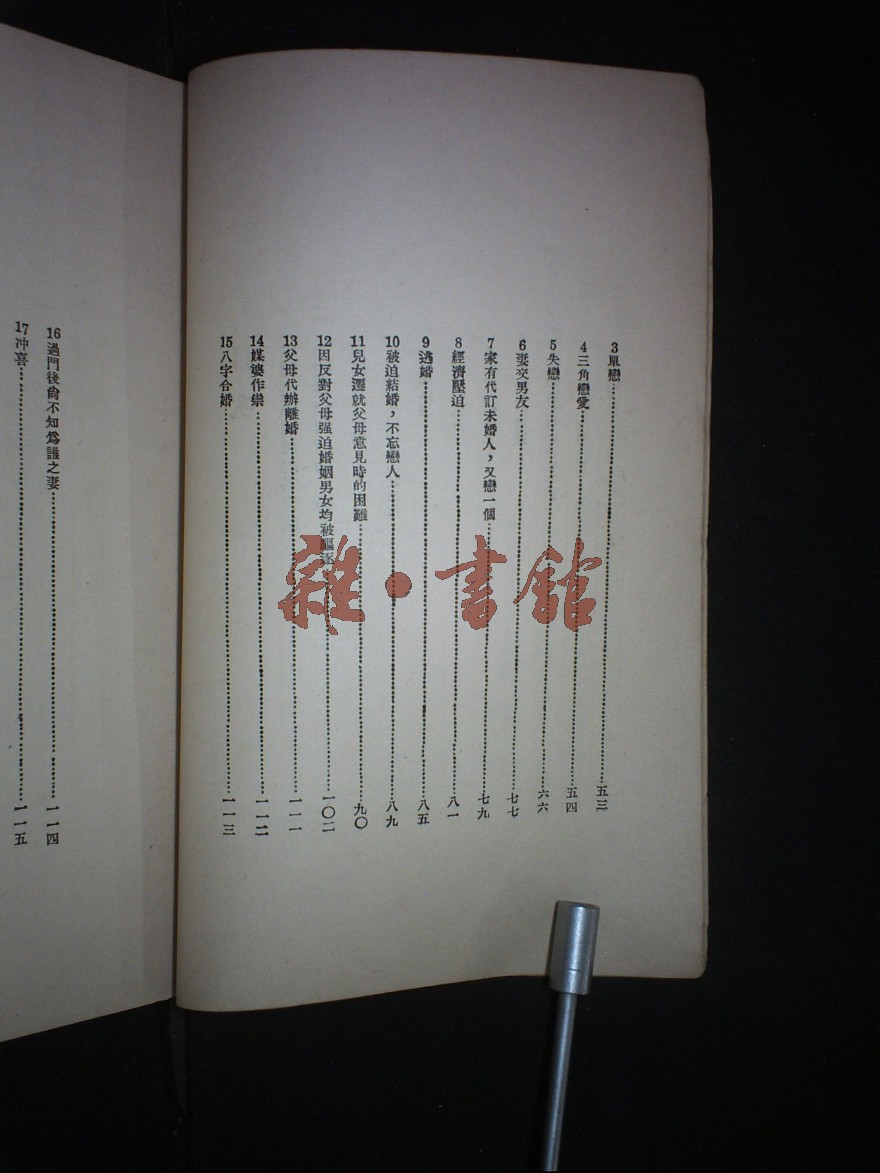 3單戀……五三
4三角戀愛……五四
5失戀……六六
6妻交男友……七七
7家有代訂未婚人，又戀一個……七九
8經濟壓迫……八一
9逃婚……八五
10被迫結婚，不忘戀人……八九
11兒女遷就父母意見時的困難……九〇
12因反對父母强迫婚姻男女均被驅逐……一〇二
13父母代辦離婚……一一一
14媒婆作祟……一一二
15八字合婚……一一三
16過門後尙不知爲誰之妻……一一四
17冲喜……一一五
雜·書館